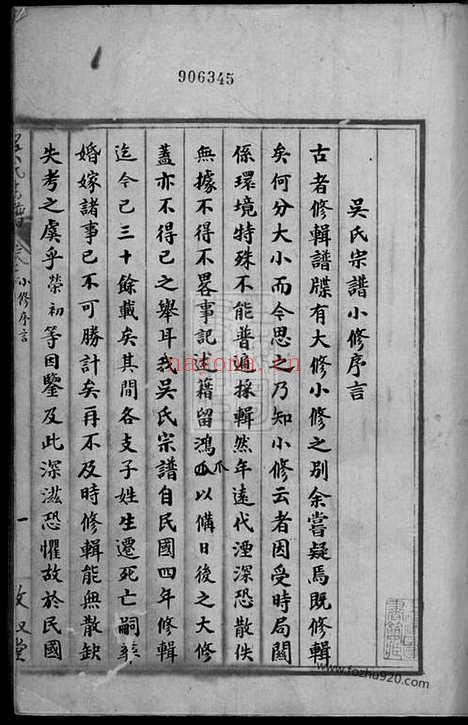 906345
吳氏宗譜小修序言
古者修輯譜牒有大修小修之別余嘗疑焉既修輯
矣何分大小而今思之乃知小修云者因受時局關
係環境特殊不能普遍採輯然年遠代湮深恐散佚
無據不得不畧事記述藉留鴻爪以備日後之大修
蓋亦不得已之舉耳我吳氏宗譜自民國四年修輯
迄今已三十餘載矣其間各支子姓生遷死亡嗣葬
婚嫁諸事已不可勝計矣再不及時修輯能無散缺
失考之虞乎榮初等因鑒及此深滋恐懼故於民國
小修序言
一
nayona.cn
www.fozhu920.com